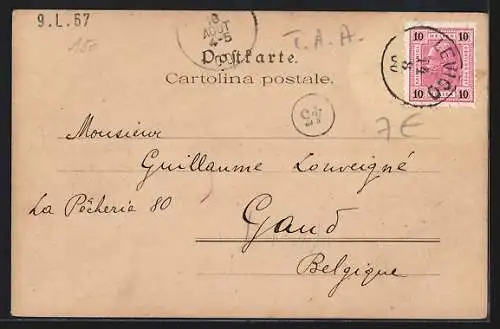 9.L.67
150
10
AOUT
4-5
T.A.A.
10 10
LEVICO
10 10
Postkarte.
Cartolina postale.
7€
Monsieur
Guillaume Louveigné
La Pêcherie 80
Gand
Belgique